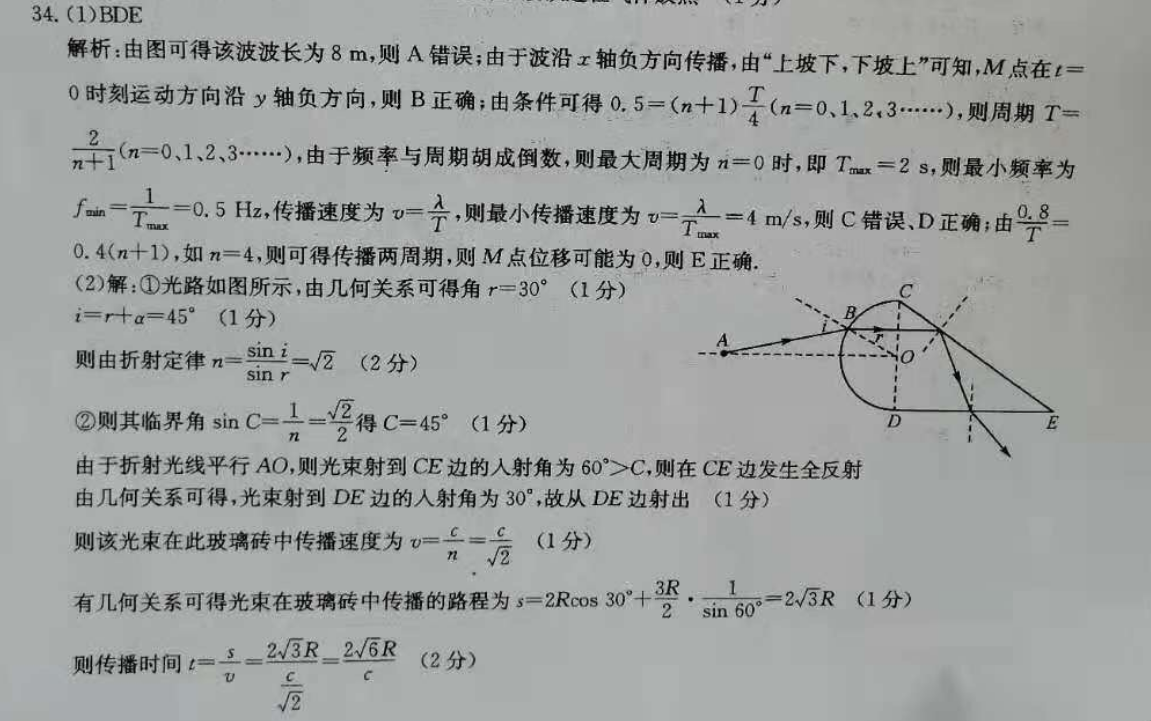 34. (1)BDE
解析:由图可得该波波长为 8 m,则 A 错误;由于波沿 x 轴负方向传播,由“上坡下,下坡上”可知,M 点在 t=
0 时刻运动方向沿 y 轴负方向,则 B 正确;由条件可得 0.5=(n+1)T/4(n=0、1、2、3……),则周期 T=
2/(n+1)(n=0、1、2、3……),由于频率与周期胡成倒数,则最大周期为 n=0 时,即 Tmax=2 s,则最小频率为
fmin=1/Tmax=0.5 Hz,传播速度为 v=λ/T,则最小传播速度为 v=λ/Tmax=4 m/s,则 C 错误、D 正确;由0.8/T=
0.4(n+1),如 n=4,则可得传播两周期,则 M 点位移可能为 0,则 E 正确.
(2)解:①光路如图所示,由几何关系可得角 r=30° (1 分)
i=r+α=45° (1 分)
则由折射定律 n=sin i/sin r=√2 (2 分)
②则其临界角 sin C=1/n=√2/2得 C=45° (1 分)
由于折射光线平行 AO,则光束射到 CE 边的入射角为 60°>C,则在 CE 边发生全反射
由几何关系可得,光束射到 DE 边的入射角为 30°,故从 DE 边射出 (1 分)
则该光束在此玻璃砖中传播速度为 v=c/n=c/√2 (1 分)
有几何关系可得光束在玻璃砖中传播的路程为 s=2Rcos 30°+3R/2·1/sin 60°=2√3R (1 分)
则传播时间 t=s/v=2√3R/(c/√2)=2√6R/c (2 分)
C
B
i
r
A
O
D
E